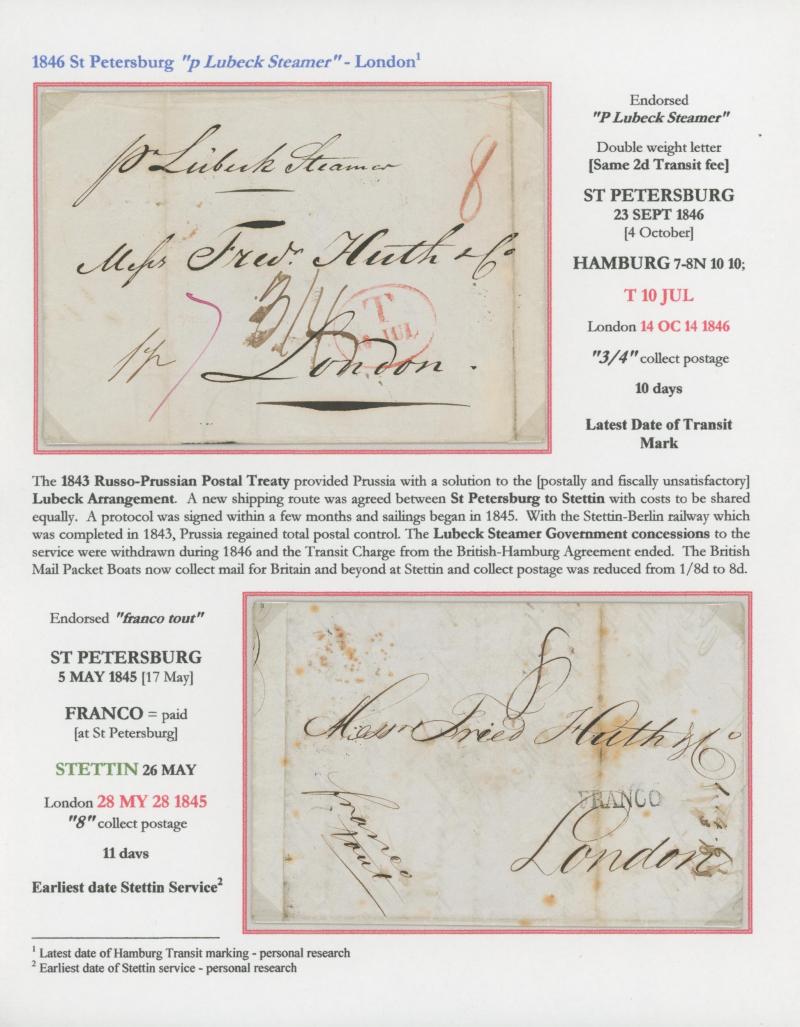 1846 St Petersburg "p Lubeck Steamer" - London¹
pr Lübeck Steamer
8
Messrs Fredr. Huth & Co
3/4
T
JUL
London.
Endorsed
"P Lubeck Steamer"
Double weight letter
[Same 2d Transit fee]
ST PETERSBURG
23 SEPT 1846
[4 October]
HAMBURG 7-8N 10 10;
T 10 JUL
London 14 OC 14 1846
"3/4" collect postage
10 days
Latest Date of Transit
Mark
The 1843 Russo-Prussian Postal Treaty provided Prussia with a solution to the [postally and fiscally unsatisfactory]
Lubeck Arrangement. A new shipping route was agreed between St Petersburg to Stettin with costs to be shared
equally. A protocol was signed within a few months and sailings began in 1845. With the Stettin-Berlin railway which
was completed in 1843, Prussia regained total postal control. The Lubeck Steamer Government concessions to the
service were withdrawn during 1846 and the Transit Charge from the British-Hamburg Agreement ended. The British
Mail Packet Boats now collect mail for Britain and beyond at Stettin and collect postage was reduced from 1/8d to 8d.
Endorsed "franco tout"
ST PETERSBURG
5 MAY 1845 [17 May]
FRANCO = paid
[at St Petersburg]
STETTIN 26 MAY
London 28 MY 28 1845
"8" collect postage
11 days
Earliest date Stettin Service²
8
Messrs Fried Huth & Co
franco
tout
FRANCO
London
¹ Latest date of Hamburg Transit marking - personal research
² Earliest date of Stettin service - personal research